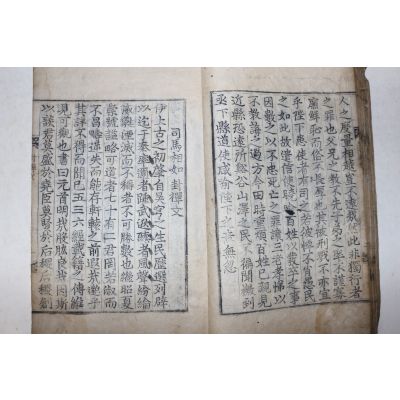 人之度量相越豈不遠哉然此非獨行者
之罪也父兄之教不先子弟之率不謹寡
廉鮮恥而俗不長厚也其被刑戮不亦宜
乎陛下患使者有司之若彼悼不肖愚民
之如此故遣信使曉諭百姓以發卒之事
因數之以不忠死亡之罪讓三老孝悌以
不教誨之過方今田時重煩百姓已親見
近縣恐遠所谿谷山澤之民不徧聞檄到
亟下縣道使咸喻陛下之意無忽
司馬相如 封禪文
伊上古之初肇自昊穹兮生民歷選列辟
以迄于秦率邇者踵武逖聽者風聲紛綸
葳蕤湮滅而不稱者不可勝數也繼昭夏
崇號諡略可道者七十有二君罔若淑而
不昌疇逆失而能存軒轅之前遐哉邈乎
其詳不得而聞已五三六經載籍之傳維
見可觀也書曰元首明哉股肱良哉因斯
以談君莫盛於堯臣莫賢於后稷后稷創